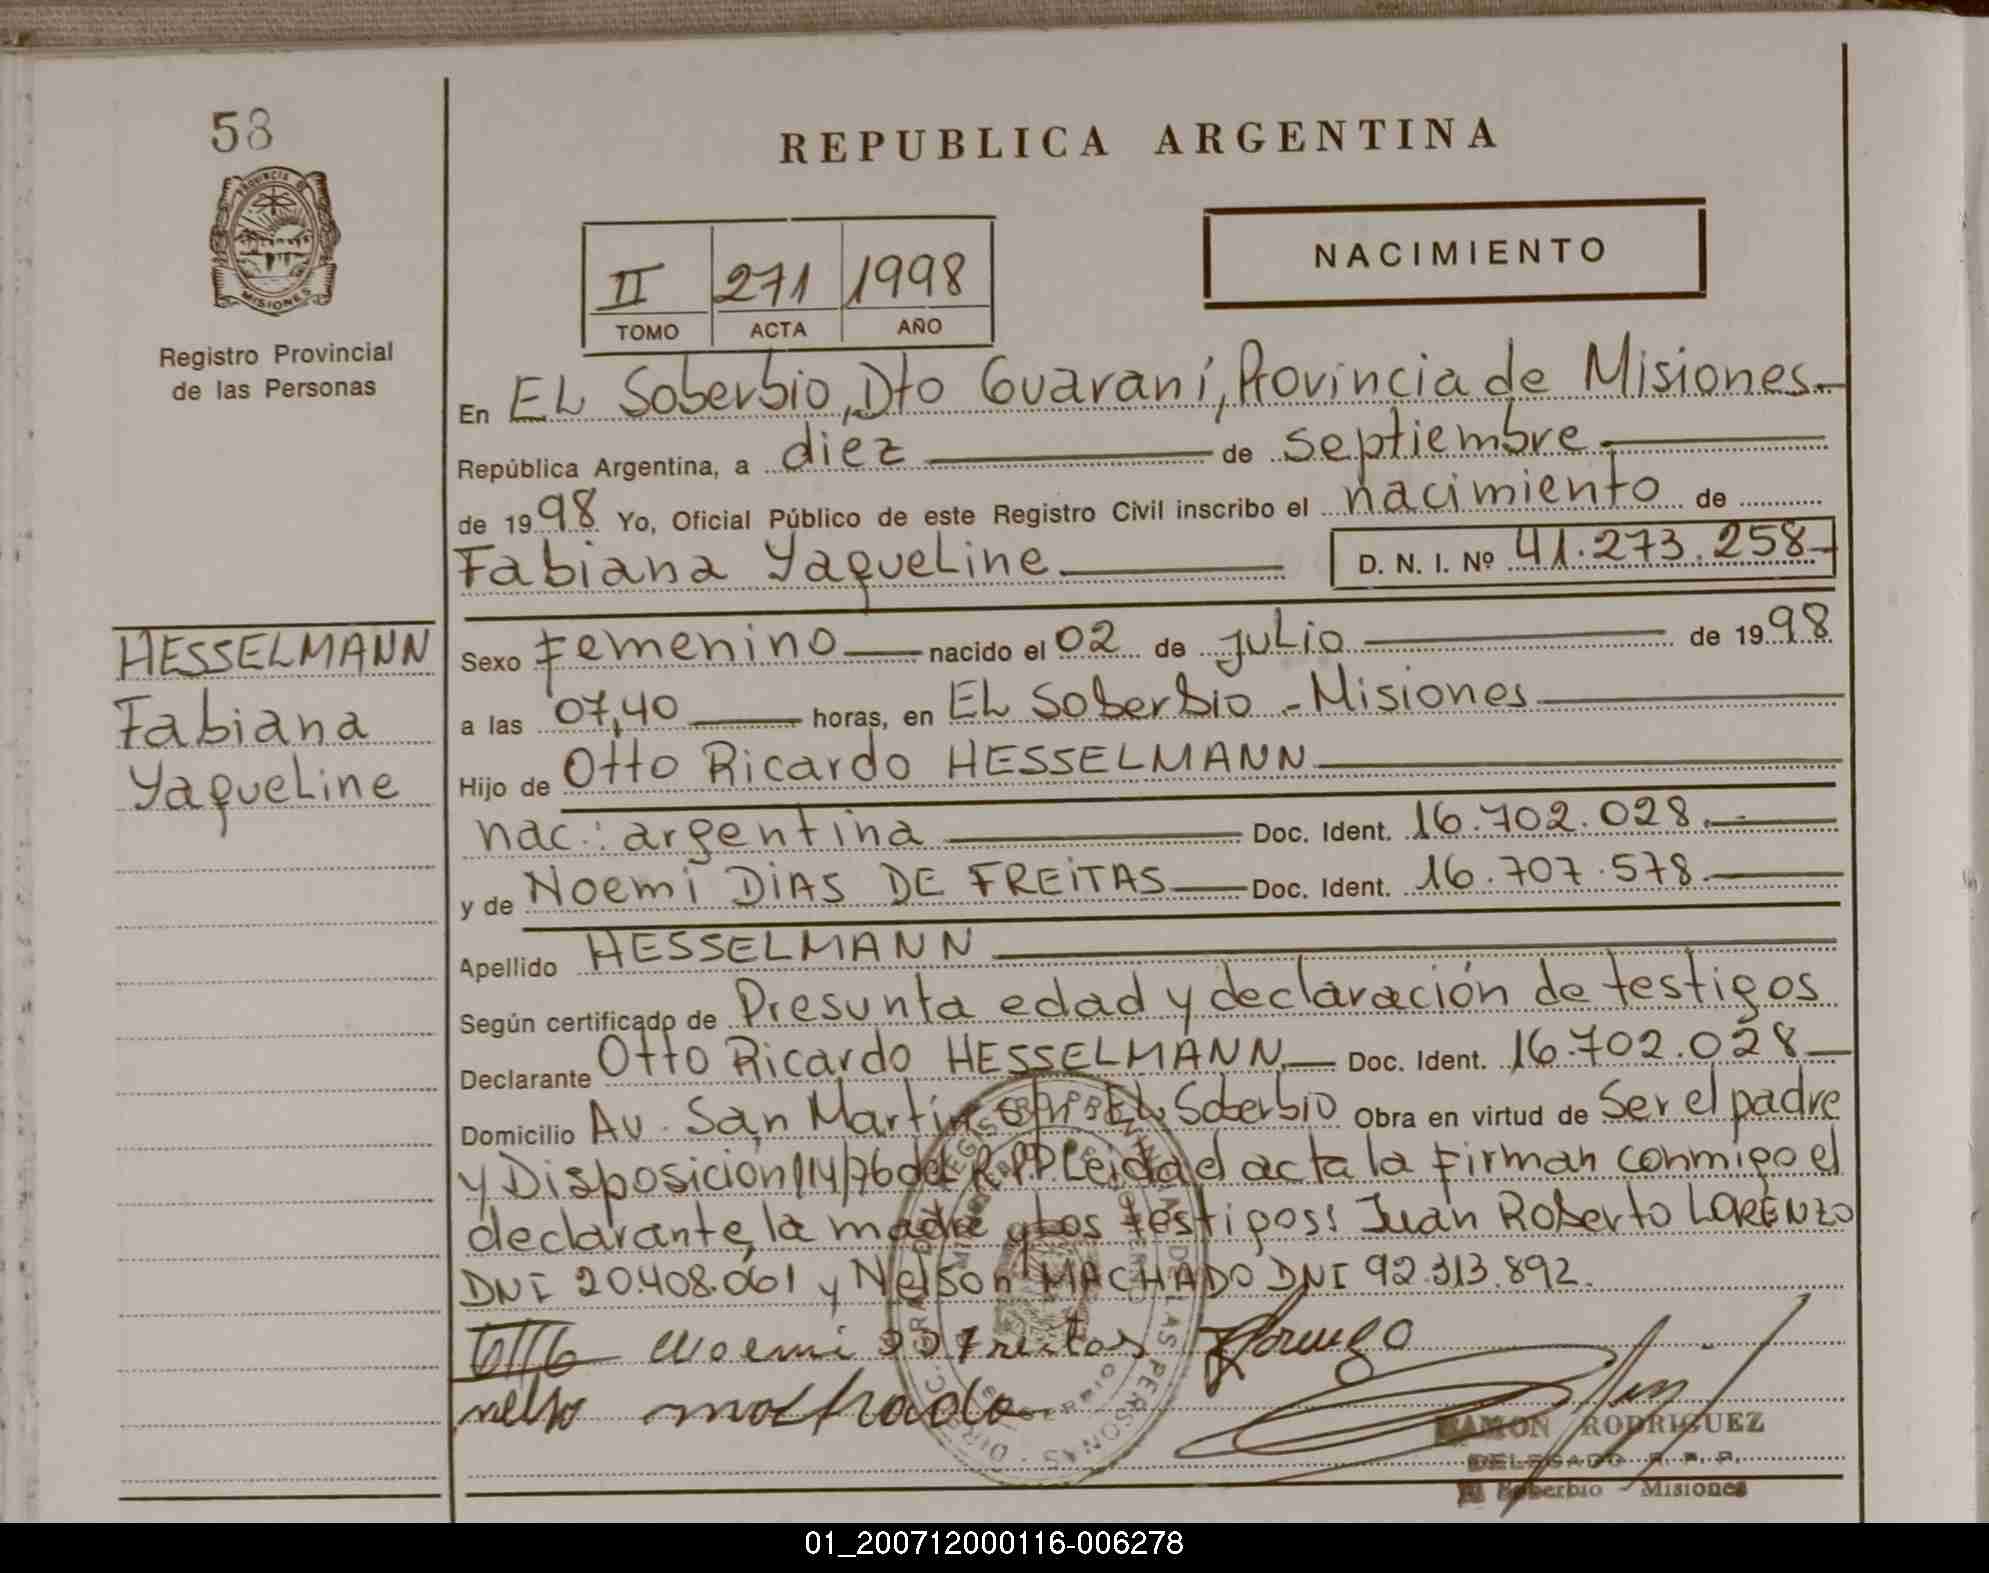 58
PROVINCIA DE
MISIONES
Registro Provincial
de las Personas
HESSELMANN
Fabiana
Yaqueline
REPUBLICA ARGENTINA
II 271 1998
TOMO ACTA AÑO
NACIMIENTO
En EL Soberbio, Dto Guaraní, Provincia de Misiones
República Argentina, a diez de septiembre
de 1998 Yo, Oficial Público de este Registro Civil inscribo el nacimiento de
Fabiana Yaqueline D. N. I. Nº 41.273.258
Sexo Femenino nacido el 02 de juLio de 1998
a las 07,40 horas, en EL Soberbio - Misiones
Hijo de Otto Ricardo HESSELMANN
nac: argentina Doc. Ident. 16.702.028
y de Noemi DIAS DE FREITAS Doc. Ident. 16.707.578
Apellido HESSELMANN
Según certificado de Presunta edad y declaración de testigos
Declarante Otto Ricardo HESSELMANN Doc. Ident. 16.702.028
Domicilio Av. San Martín EL Soberbio Obra en virtud de Ser el padre
y Disposición 114/76 del R.P.P. Leida el acta la firman conmigo el
declarante, la madre y Los testigos: Juan Roberto LORENZO
DNI 20.408.061 y Nelson MACHADO DNI 92.313.892.
Noemi DD Freitas Lorenzo
nelso machado
RAMON RODRIGUEZ
DELEGADO R. P. P.
El Soberbio - Misiones
01_200712000116-006278